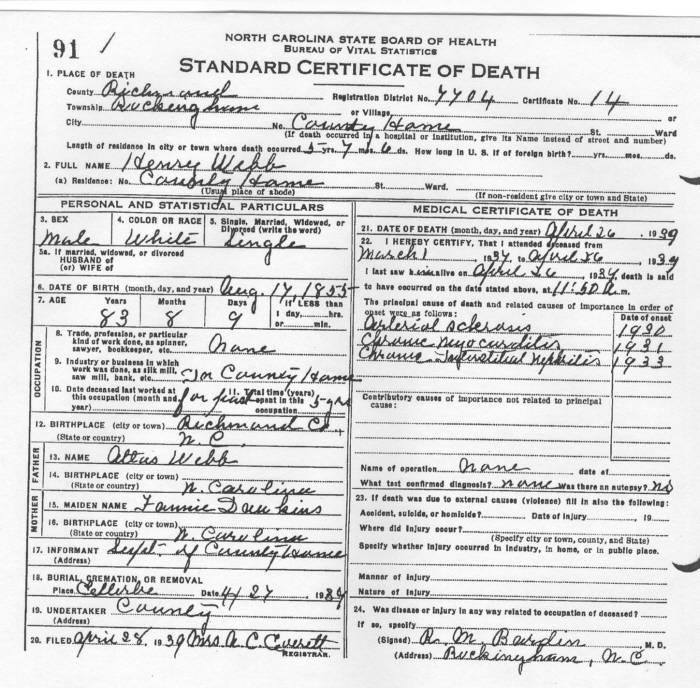 91 /
NORTH CAROLINA STATE BOARD OF HEALTH
BUREAU OF VITAL STATISTICS
STANDARD CERTIFICATE OF DEATH
1. PLACE OF DEATH
County Richmond Registration District No. 7704 Certificate No. 14
Township Rockingham or Village or
City No. County Home St. Ward
(If death occurred in a hospital or institution, give its Name instead of street and number)
Length of residence in city or town where death occurred 5 yrs. 7 mos. 6 ds. How long in U. S. if of foreign birth? yrs. mos. ds.
2. FULL NAME Henry Webb
(a) Residence: No. County Home St. Ward.
(Usual place of abode) (If non-resident give city or town and State)
PERSONAL AND STATISTICAL PARTICULARS
3. SEX 4. COLOR OR RACE 5. Single, Married, Widowed, or Divorced (write the word)
Male White Single
5a. If married, widowed, or divorced
HUSBAND of
(or) WIFE of
6. DATE OF BIRTH (month, day, and year) Aug 17, 1855
7. AGE Years Months Days If LESS than
83 8 9 1 day, hrs.
or min.
OCCUPATION
8. Trade, profession, or particular
kind of work done, as spinner,
sawyer, bookkeeper, etc. None
9. Industry or business in which
work was done, as silk mill,
saw mill, bank, etc. In County Home
10. Date deceased last worked at
this occupation (month and
year) for past
11. Total time (years)
spent in this
occupation 5 yrs
12. BIRTHPLACE (city or town) Richmond Co
(State or country) N. C.
FATHER
13. NAME Attus Webb
14. BIRTHPLACE (city or town)
(State or country) N. Carolina
MOTHER
15. MAIDEN NAME Fannie Dawkins
16. BIRTHPLACE (city or town)
(State or country) N. Carolina
17. INFORMANT Supt. of County Home
(Address)
18. BURIAL, CREMATION, OR REMOVAL
Place Ellerbe Date 4/27, 1939
19. UNDERTAKER County
20. FILED April 28, 1939 Mrs. A. C. Everett
REGISTRAR.
MEDICAL CERTIFICATE OF DEATH
21. DATE OF DEATH (month, day, and year) April 26, 1939
22. I HEREBY CERTIFY, That I attended deceased from
March 1, 1937, to April 26, 1939
I last saw h alive on April 26, 1939, death is said
to have occurred on the date stated above, at 11:50 a.m.
The principal cause of death and related causes of importance in order of
onset were as follows: Date of onset
Arterial Sclerosis 1930
Chronic myocarditis 1931
Chronic Interstitial Nephritis 1933
Contributory causes of importance not related to principal
cause:
Name of operation None date of
What test confirmed diagnosis? none Was there an autopsy? No
23. If death was due to external causes (violence) fill in also the following:
Accident, suicide, or homicide? Date of injury , 19
Where did injury occur?
(Specify city or town, county, and State)
Specify whether injury occurred in industry, in home, or in public place.
Manner of injury
Nature of injury
24. Was disease or injury in any way related to occupation of deceased?
If so, specify
(Signed) R. M. Bardin M. D.
(Address) Rockingham, N. C.